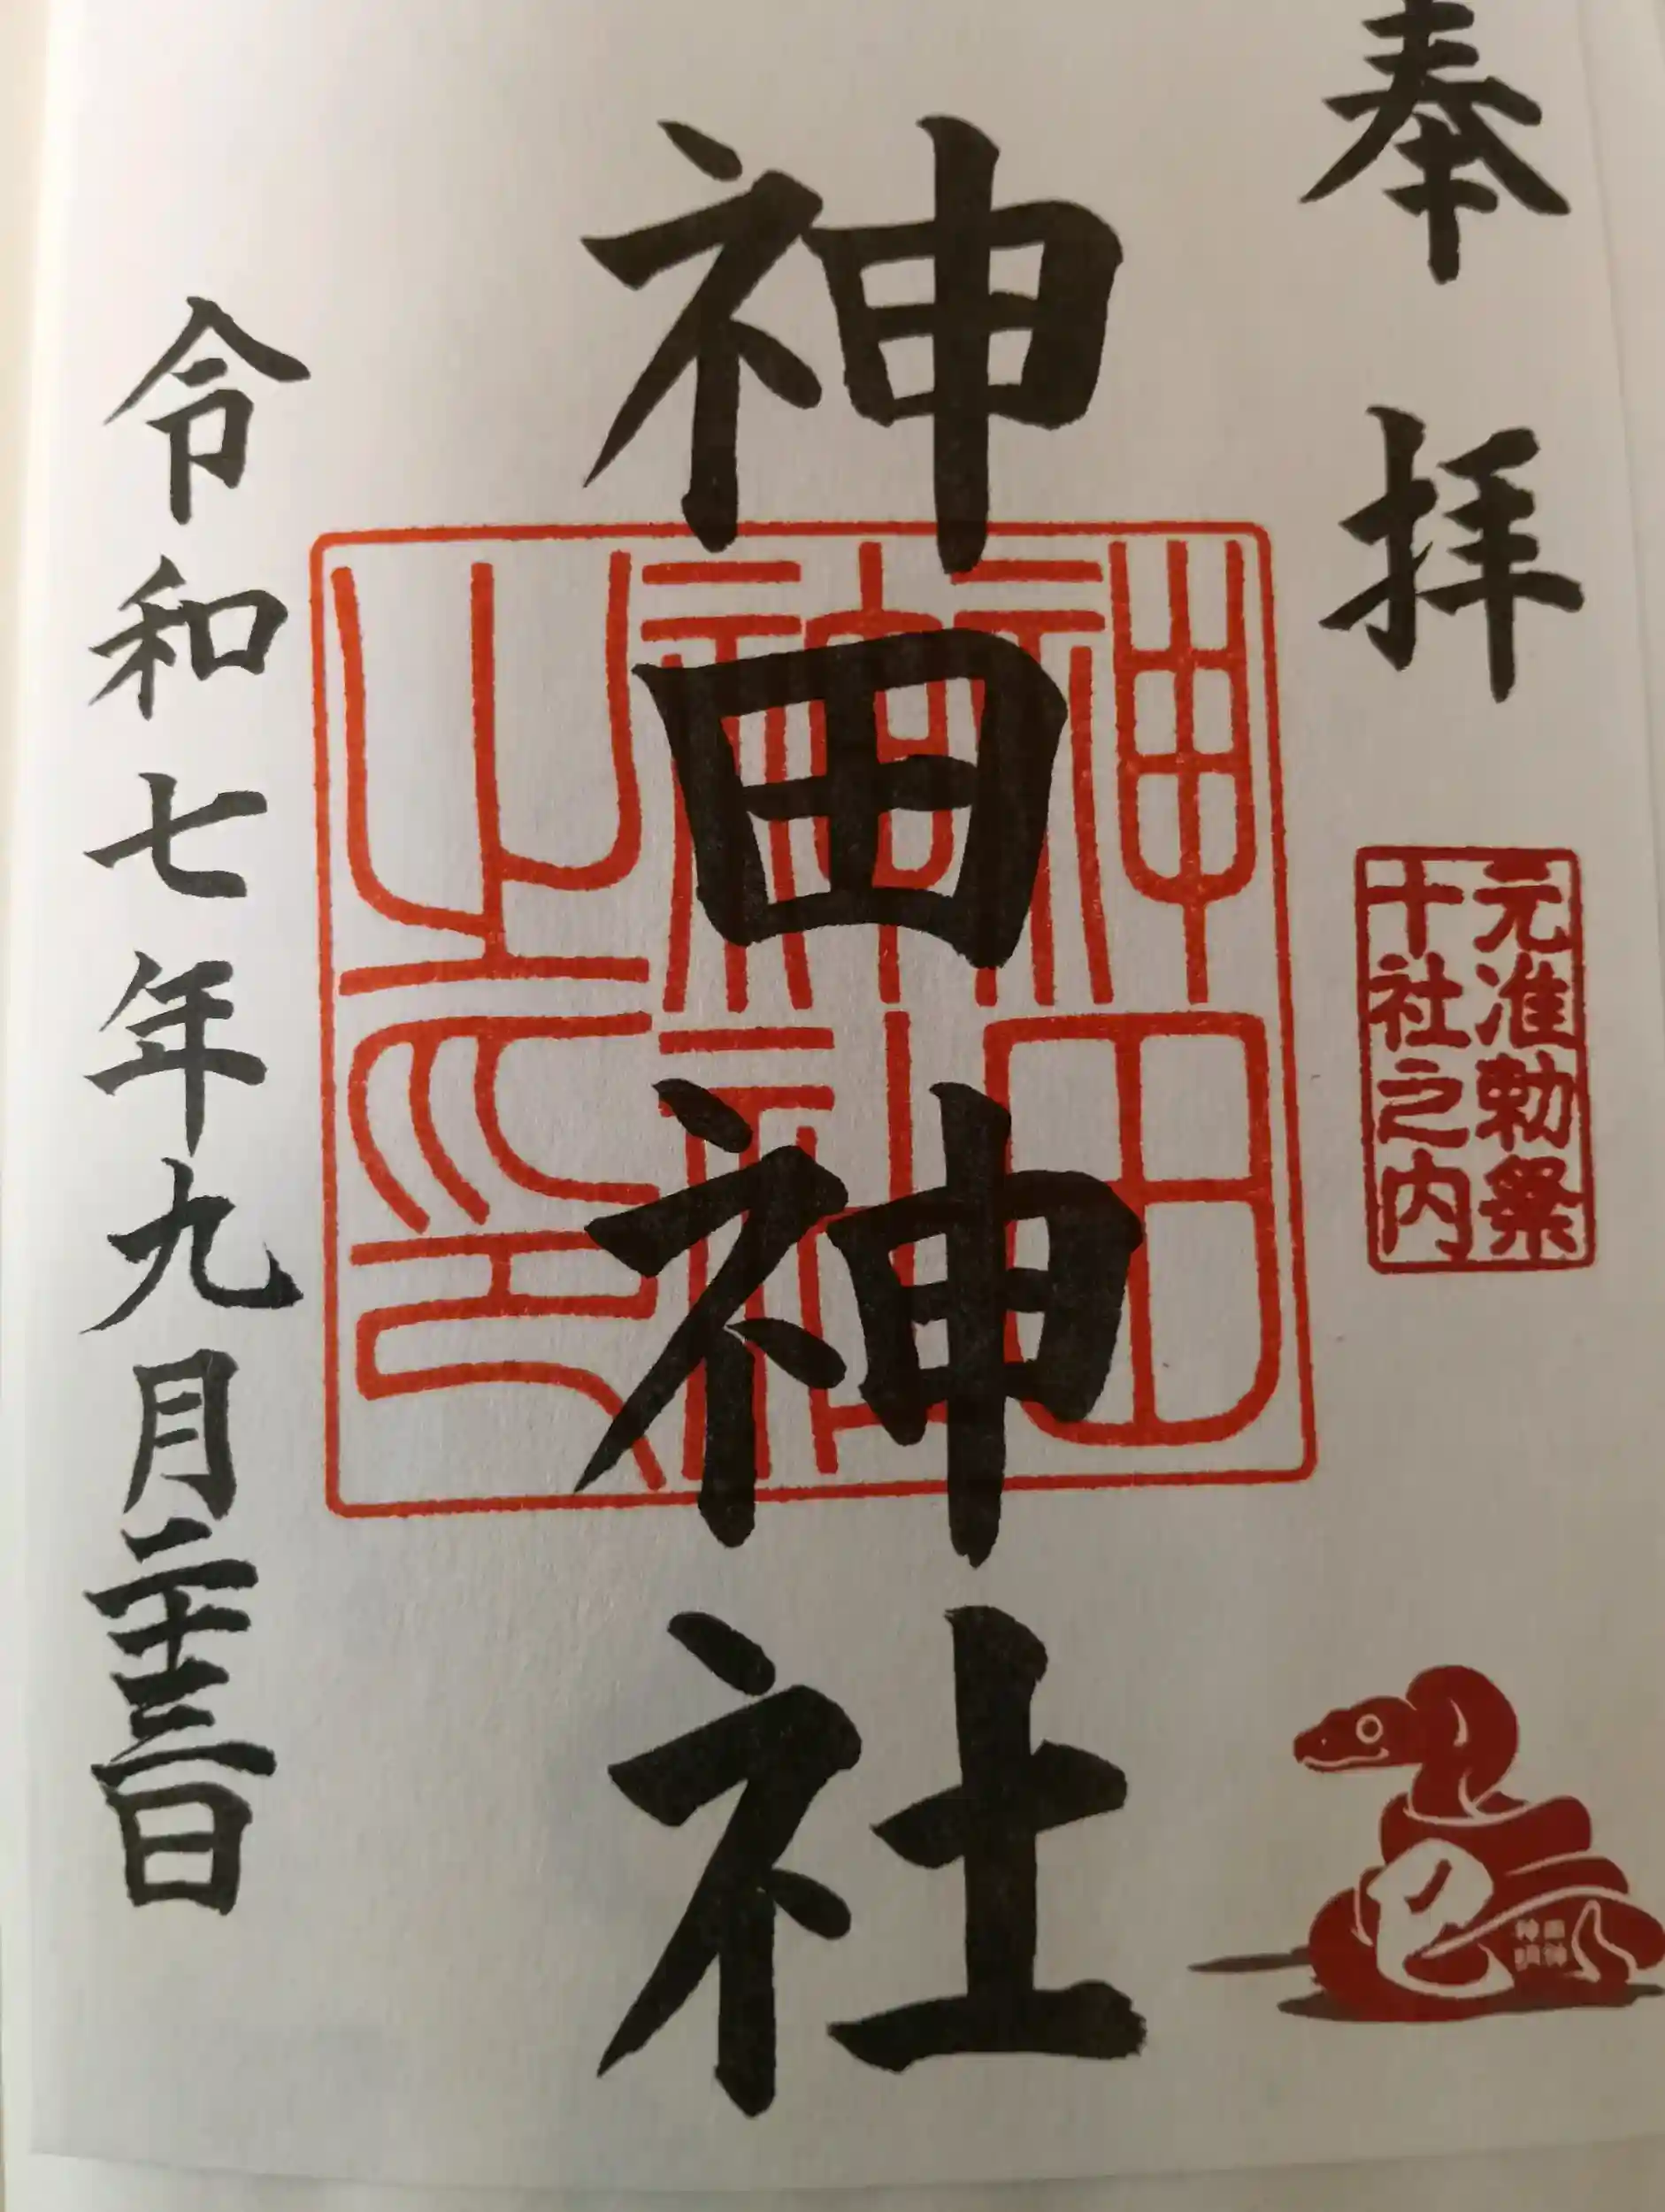 奉拝
元准勅祭
十社之内
巳
神田神社
神田神
社之印
令和七年九月二十三日